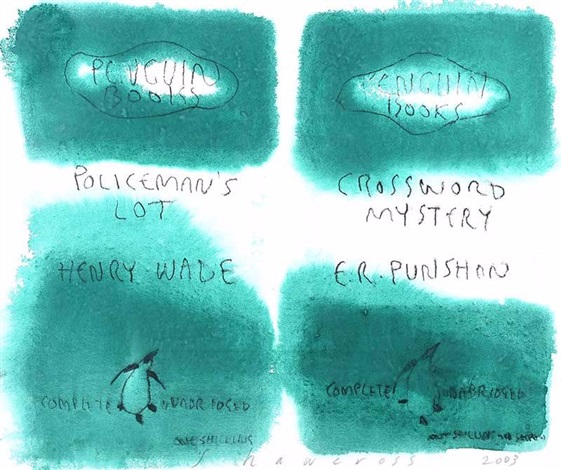 PENGUIN
BOOKS
POLICEMAN'S
LOT
HENRY WADE
COMPLETE UNABRIDGED
ONE SHILLING
PENGUIN
BOOKS
CROSSWORD
MYSTERY
E.R. PUNSHON
COMPLETE UNABRIDGED
ONE SHILLING AND SIXPENCE
Shawcross 2003